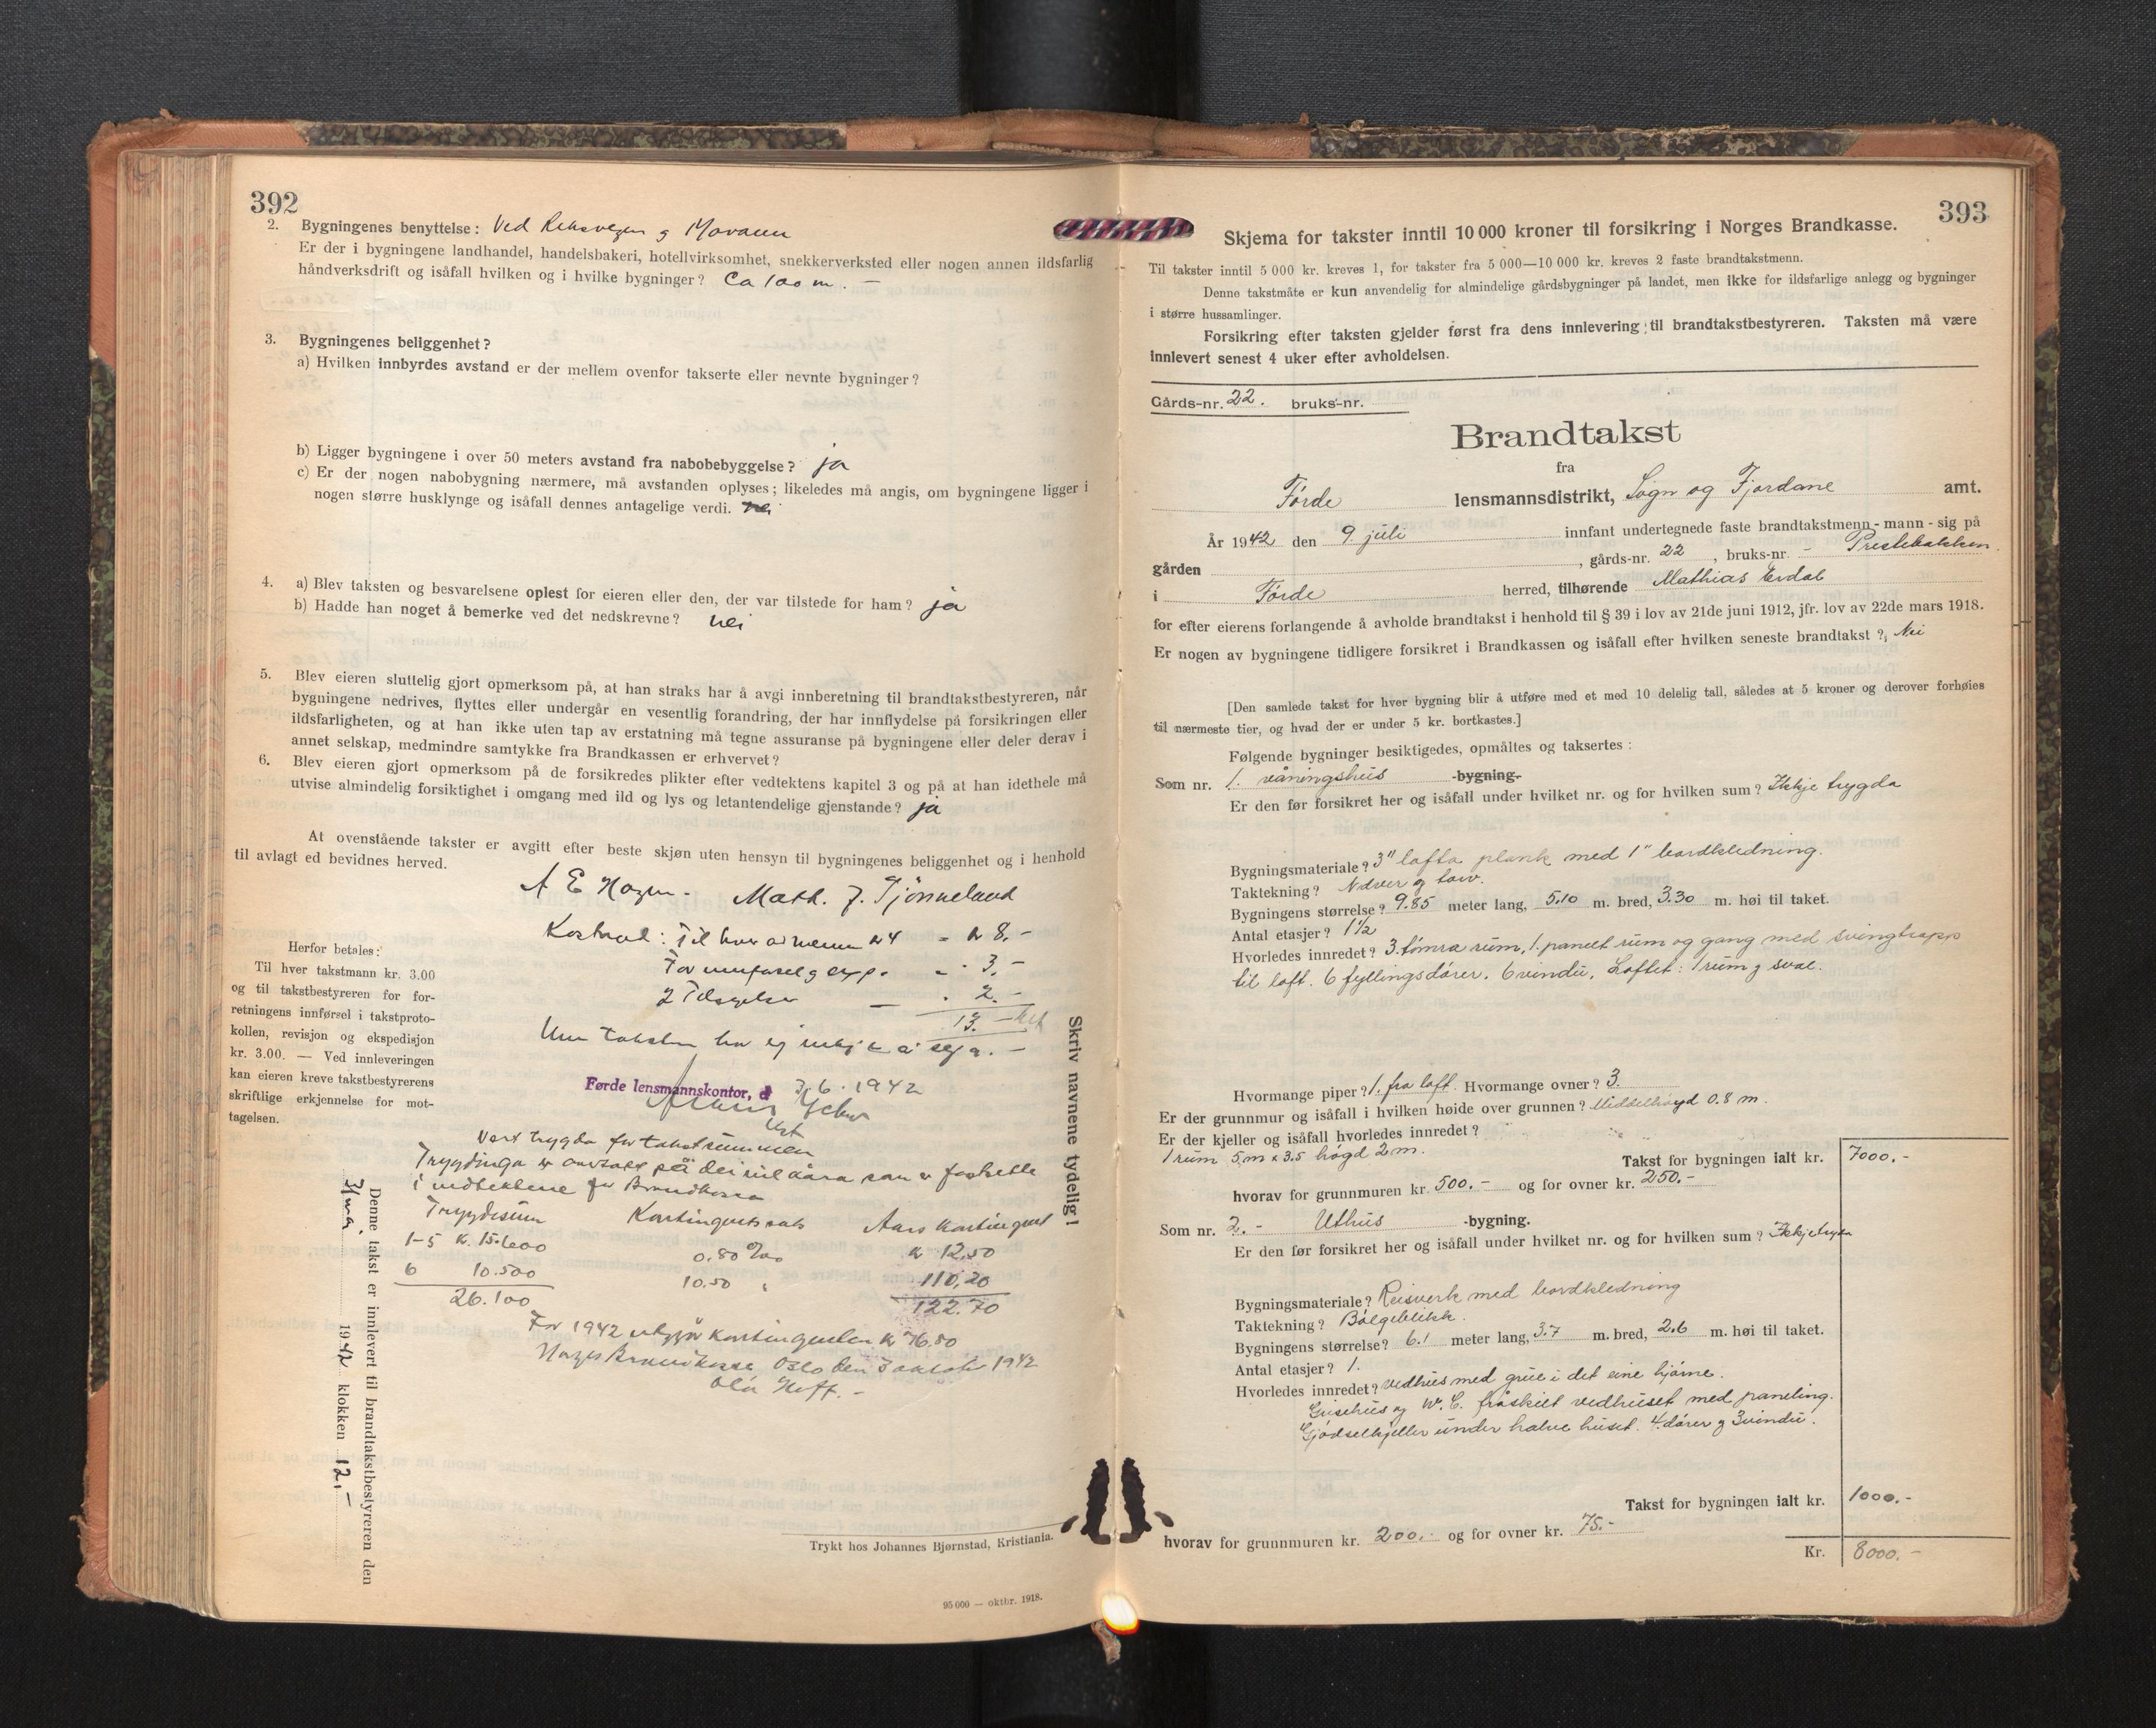 392
2. Bygningenes benyttelse: Ved Riksvegen og Movann
Er der i bygningene landhandel, handelsbakeri, hotellvirksomhet, snekkerverksted eller nogen annen ildsfarlig
håndverksdrift og isåfall hvilken og i hvilke bygninger? Ca 100 m. —
3. Bygningenes beliggenhet?
a) Hvilken innbyrdes avstand er der mellem ovenfor takserte eller nevnte bygninger?
b) Ligger bygningene i over 50 meters avstand fra nabobebyggelse? ja
c) Er der nogen nabobygning nærmere, må avstanden oplyses; likeledes må angis, om bygningene ligger i
nogen større husklynge og isåfall dennes antagelige verdi. nei
4. a) Blev taksten og besvarelsene oplest for eieren eller den, der var tilstede for ham? ja
b) Hadde han noget å bemerke ved det nedskrevne? nei
5. Blev eieren sluttelig gjort opmerksom på, at han straks har å avgi innberetning til brandtakstbestyreren, når
bygningene nedrives, flyttes eller undergår en vesentlig forandring, der har innflydelse på forsikringen eller
ildsfarligheten, og at han ikke uten tap av erstatning må tegne assuranse på bygningene eller deler derav i
annet selskap, medmindre samtykke fra Brandkassen er erhvervet?
6. Blev eieren gjort opmerksom på de forsikredes plikter efter vedtektens kapitel 3 og på at han idethele må
utvise almindelig forsiktighet i omgang med ild og lys og letantendelige gjenstande? ja
At ovenstående takster er avgitt efter beste skjøn uten hensyn til bygningenes beliggenhet og i henhold
til avlagt ed bevidnes herved.
A E Hagen - Math. J. Tjønneland
Kostnad: Til hver av menn kr 4 = kr 8.-
For innførsel og exp. - " 3.-
2 Tilsegelser — . 2.-
13.-
Um taksten har eg inkje å segja. —
Førde lensmannskontor, d 3/6. 1942
Vert trygda for takstsummen
Trygdinga er avtalt på dei vilkåra som er fastsette
i vedtektene for Brandkassa
Trygdesum Kontingentsats Aars kontingent
1-5 kr. 15.600 0.80 ‰ kr 12.50
6 10.500 10.50 " 110,20
26.100 122.70
For 1942 utgjør kontingenten kr 76.80
Norges Brandkasse Oslo den 3 oktober 1942
Herfor betales:
Til hver takstmann kr. 3.00
og til takstbestyreren for for-
retningens innførsel i takstproto-
kollen, revisjon og ekspedisjon
kr. 3.00. — Ved innleveringen
kan eieren kreve takstbestyrerens
skriftlige erkjennelse for mot-
tagelsen.
Denne takst er innlevert til brandtakstbestyreren den
1942 klokken 12,-
Skriv navnene tydelig!
Trykt hos Johannes Bjørnstad, Kristiania.
95 000 — oktbr. 1918.
393
Skjema for takster inntil 10 000 kroner til forsikring i Norges Brandkasse.
Til takster inntil 5 000 kr. kreves 1, for takster fra 5 000—10 000 kr. kreves 2 faste brandtakstmenn.
Denne takstmåte er kun anvendelig for almindelige gårdsbygninger på landet, men ikke for ildsfarlige anlegg og bygninger
i større hussamlinger.
Forsikring efter taksten gjelder først fra dens innlevering til brandtakstbestyreren. Taksten må være
innlevert senest 4 uker efter avholdelsen.
Gårds-nr. 22. bruks-nr.
Brandtakst
fra
Førde lensmannsdistrikt, Sogn og Fjordane amt.
År 1942 den 9. juli innfant undertegnede faste brandtakstmenn - mann - sig på
gården , gårds-nr. 22 , bruks-nr. - Prestebakken
i Førde herred, tilhørende Mathias Erdal
for efter eierens forlangende å avholde brandtakst i henhold til § 39 i lov av 21de juni 1912, jfr. lov av 22de mars 1918.
Er nogen av bygningene tidligere forsikret i Brandkassen og isåfall efter hvilken seneste brandtakst? Nei
[Den samlede takst for hver bygning blir å utføre med et med 10 delelig tall, således at 5 kroner og derover forhøies
til nærmeste tier, og hvad der er under 5 kr. bortkastes.]
Følgende bygninger besiktigedes, opmåltes og taksertes:
Som nr. 1. våningshus -bygning-
Er den før forsikret her og isåfall under hvilket nr. og for hvilken sum? Ikkje trygda
Bygningsmateriale? 3" lafta plank med 1" bordkledning.
Taktekning? Næver og torv.
Bygningens størrelse? 9.85 meter lang, 5.10 m. bred, 3.30 m. høi til taket.
Antal etasjer? 1½
Hvorledes innredet? 3 tømra rum, 1. panelt rum og gang med svingtrapp
til loft. 6 fyllingsdører. 6 vindu. Loftet: 1 rum og sval.
Hvormange piper? 1. fra loft. Hvormange ovner? 3.
Er der grunnmur og isåfall i hvilken høide over grunnen? Middelhøgd 0.8 m.
Er der kjeller og isåfall hvorledes innredet?
1 rum 5 m x 3.5 høgd 2 m.
Takst for bygningen ialt kr. 7000.-
hvorav for grunnmuren kr. 500.- og for ovner kr. 250.-
Som nr. 2. - Uthus -bygning.
Er den før forsikret her og isåfall under hvilket nr. og for hvilken sum? Ikkje trygda
Bygningsmateriale? Reisverk med bordkledning
Taktekning? Bølgeblikk.
Bygningens størrelse? 6.1 meter lang, 3.7 m. bred, 2.6 m. høi til taket.
Antal etasjer? 1.
Hvorledes innredet? Vedhus med grue i det eine hjørne.
Grisehus og W. C. fråskilt vedhuset med paneling.
Gjødselkjeller under halve huset. 4. dører og 3 vindu.
Takst for bygningen ialt kr. 1000.-
hvorav for grunnmuren kr. 200.- og for ovner kr. 75.-
Kr. 8000.-